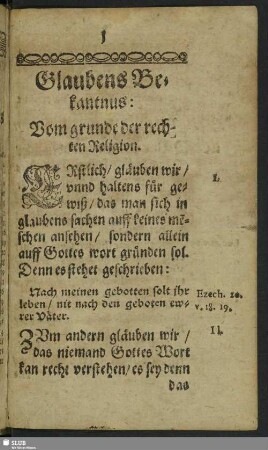 1
Glaubens Be-
kantnus:
Vom grunde der rech-
ten Religion.
ERstlich/ gläuben wir/
vnnd haltens für ge-
wiß/ das man sich in
glaubens sachen auff keines mē-
schen ansehen/ sondern allein
auff Gottes wort gründen sol.
Denn es stehet geschrieben:
Nach meinen gebotten solt ihr
leben/ nit nach den geboten ew-
rer Väter.
ZVm andern gläuben wir/
das niemand Gottes Wort
kan recht verstehen/ es sey denn
das
I.
Ezech. 20.
v. 18. 19.
II.
SLUB